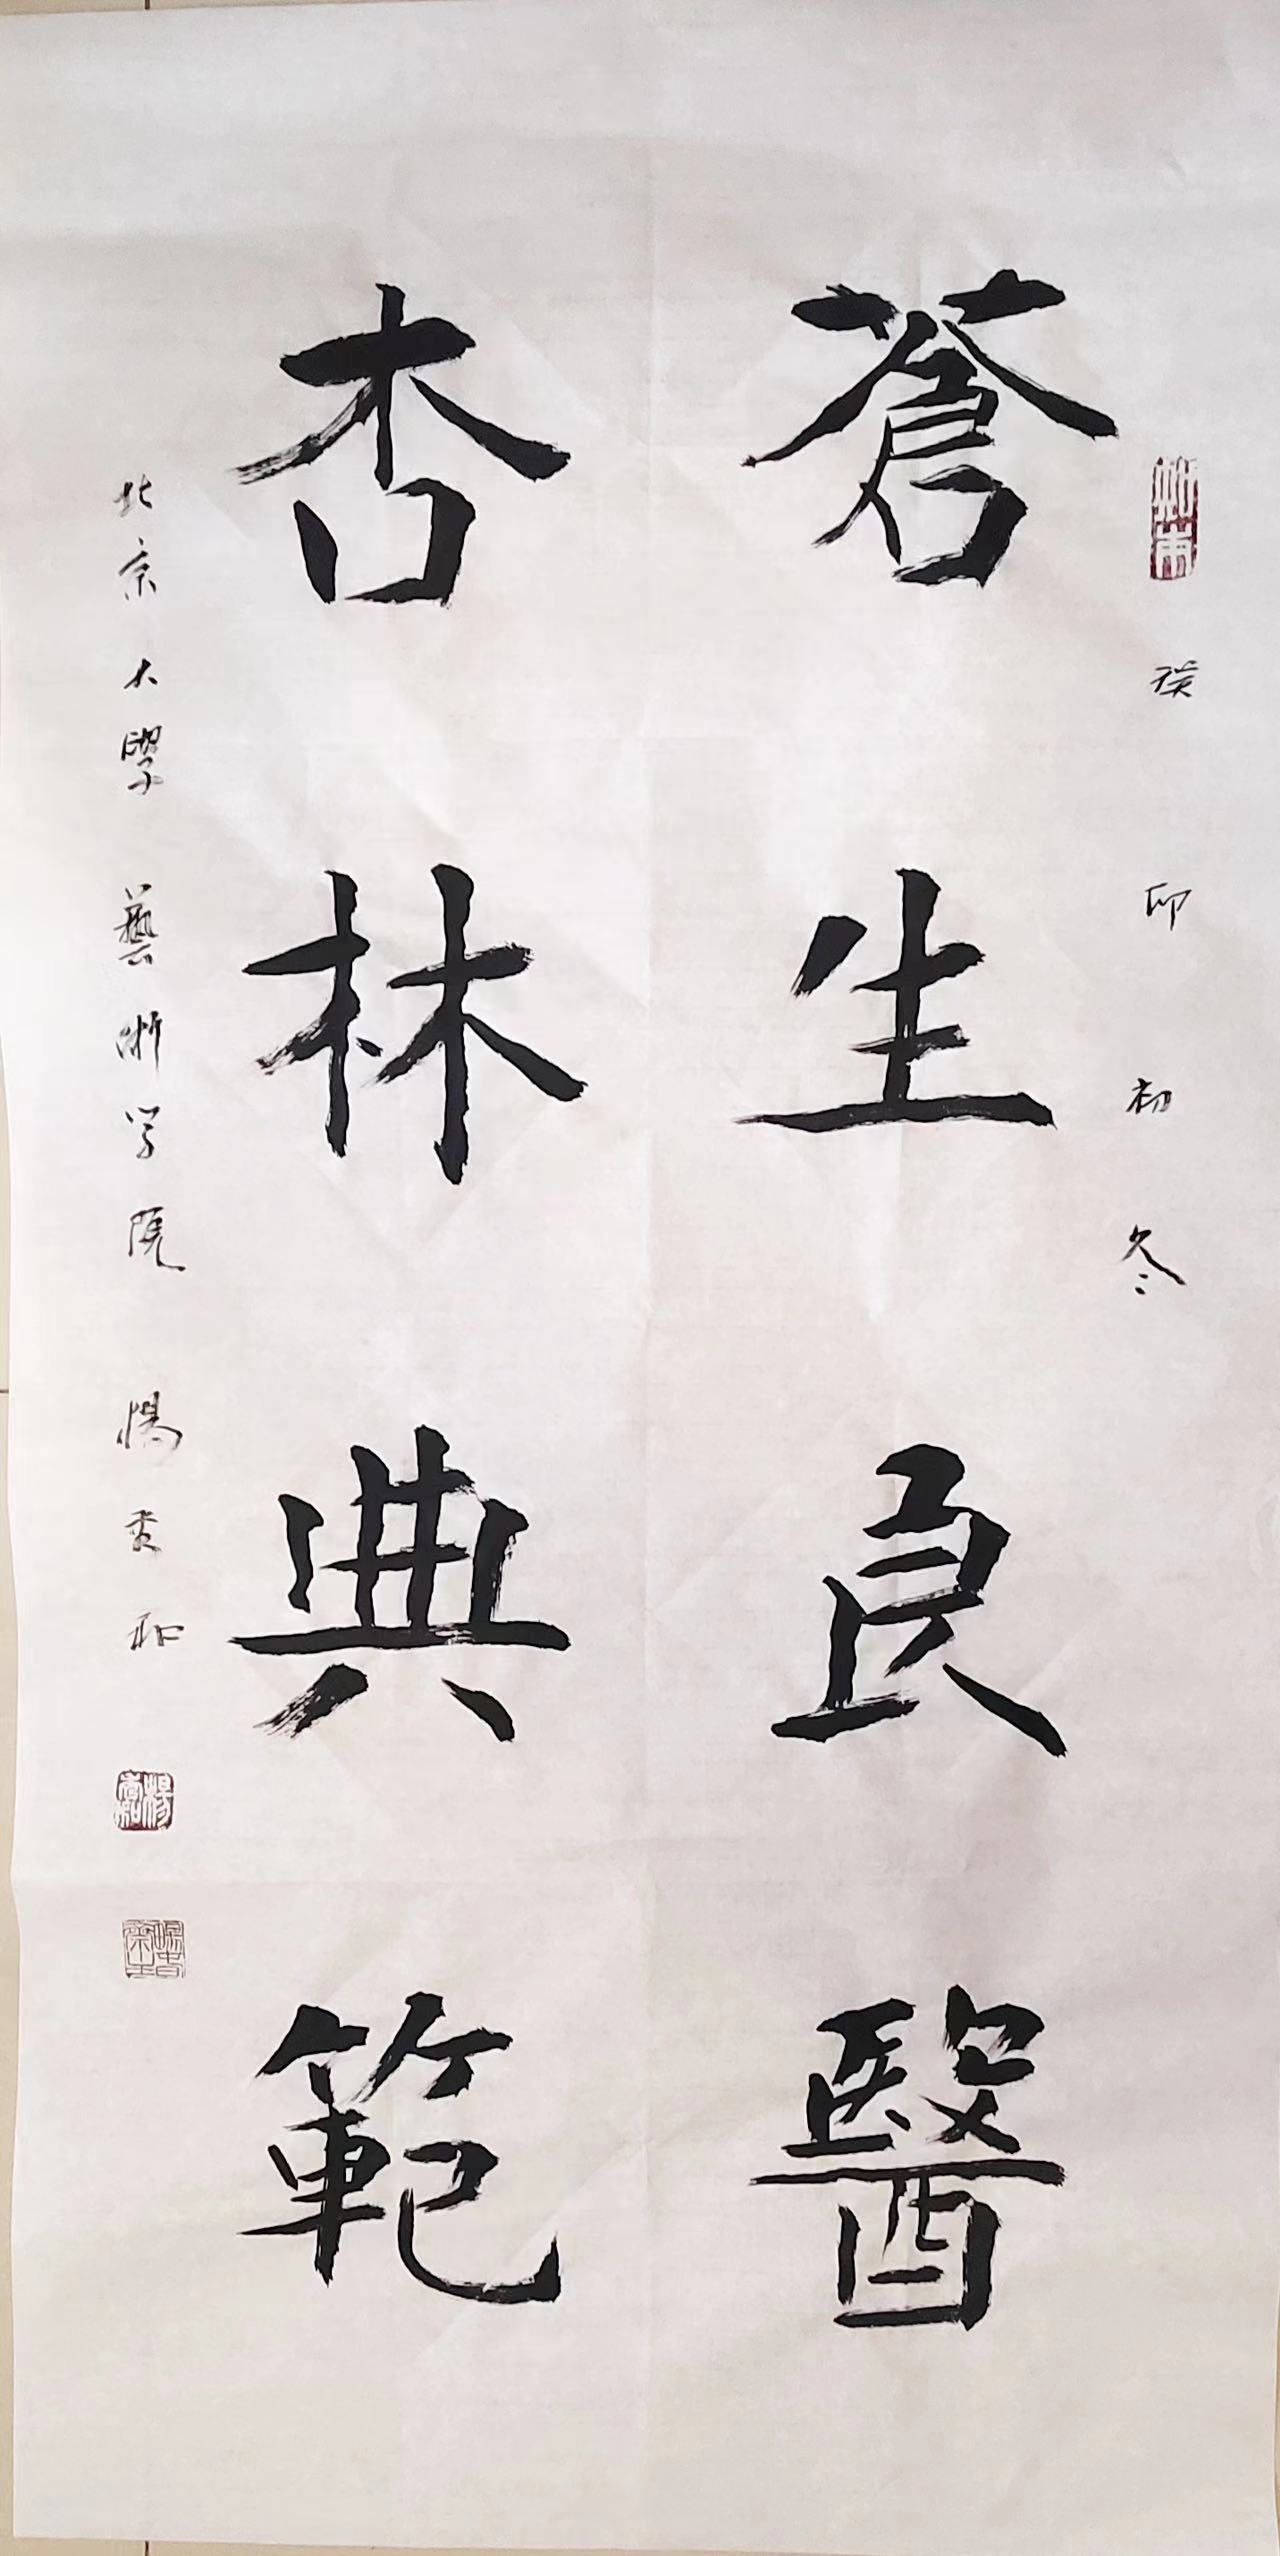 癸卯初冬
蒼生良醫
杏林典範
北京大學藝術学院楊秀和